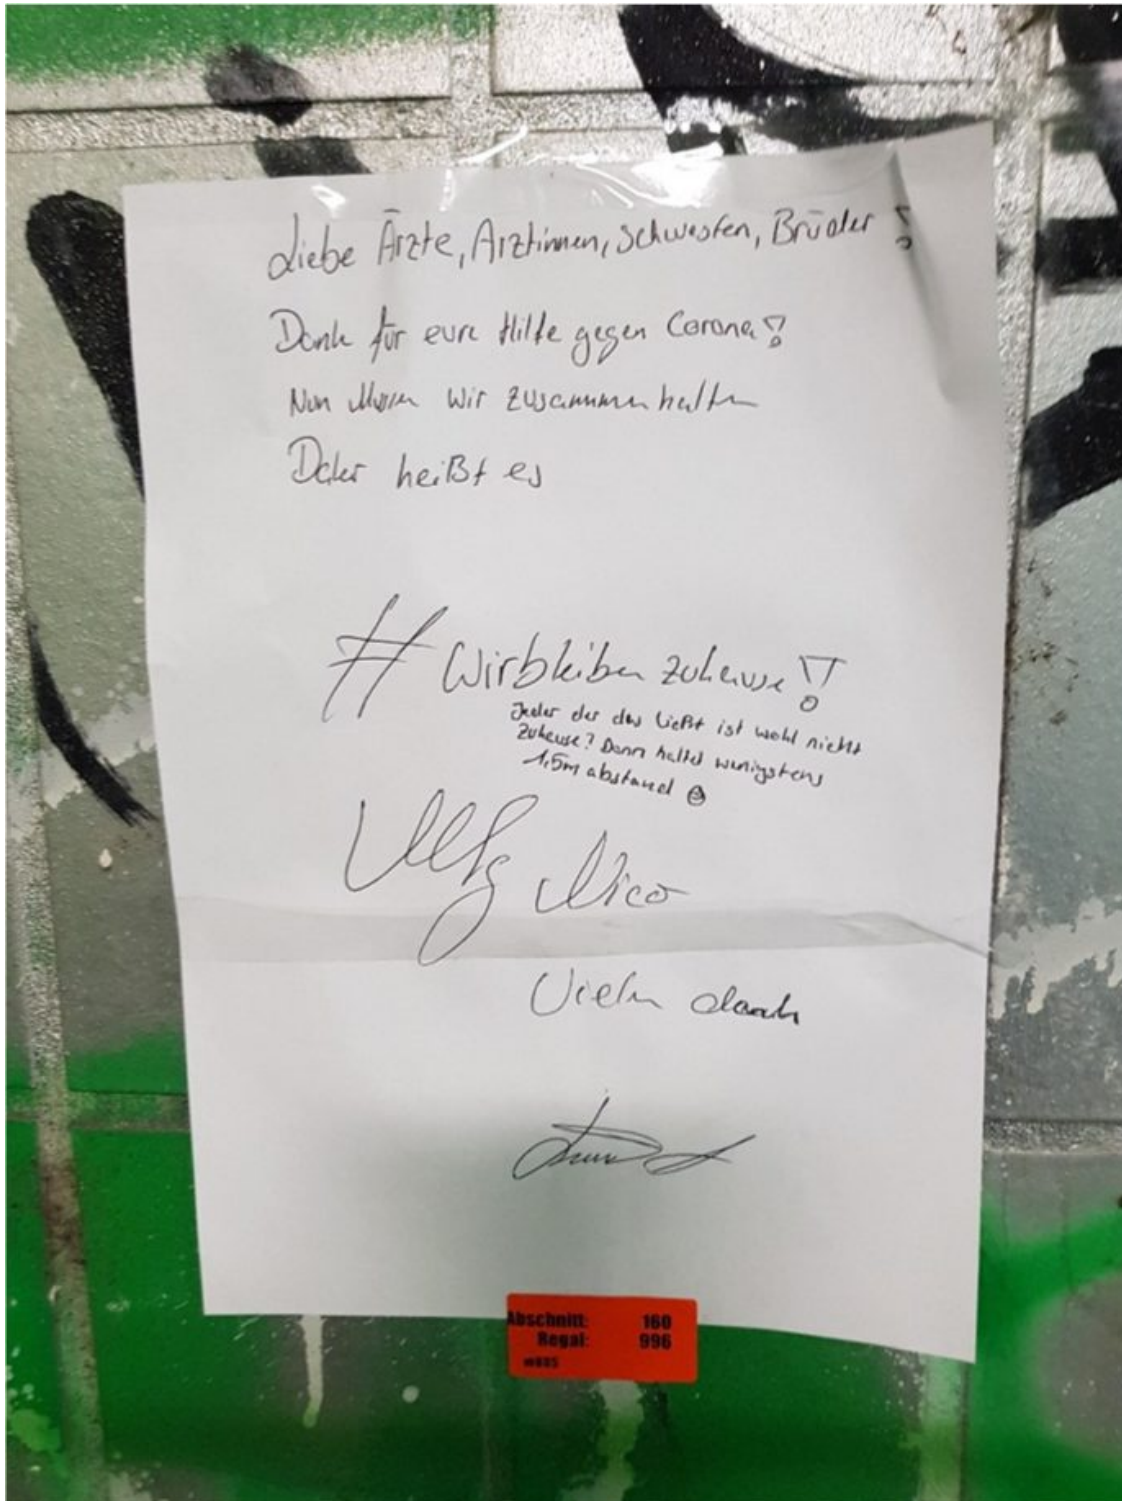 Liebe Ärzte, Arztinnen, Schwesten, Brüder !
Dank für eure Hilfe gegen Corona!
Nun Müssen wir zusammenhalten
Daher heißt es
# Wirbleiben zuhause!!
Jeder der das ließt ist wohl nicht
Zuhause? Dann haltet wenigstens
1,5m abstand ☺
Mfg Nico
Vielen dank
Abschnitt: 160
Regal: 996